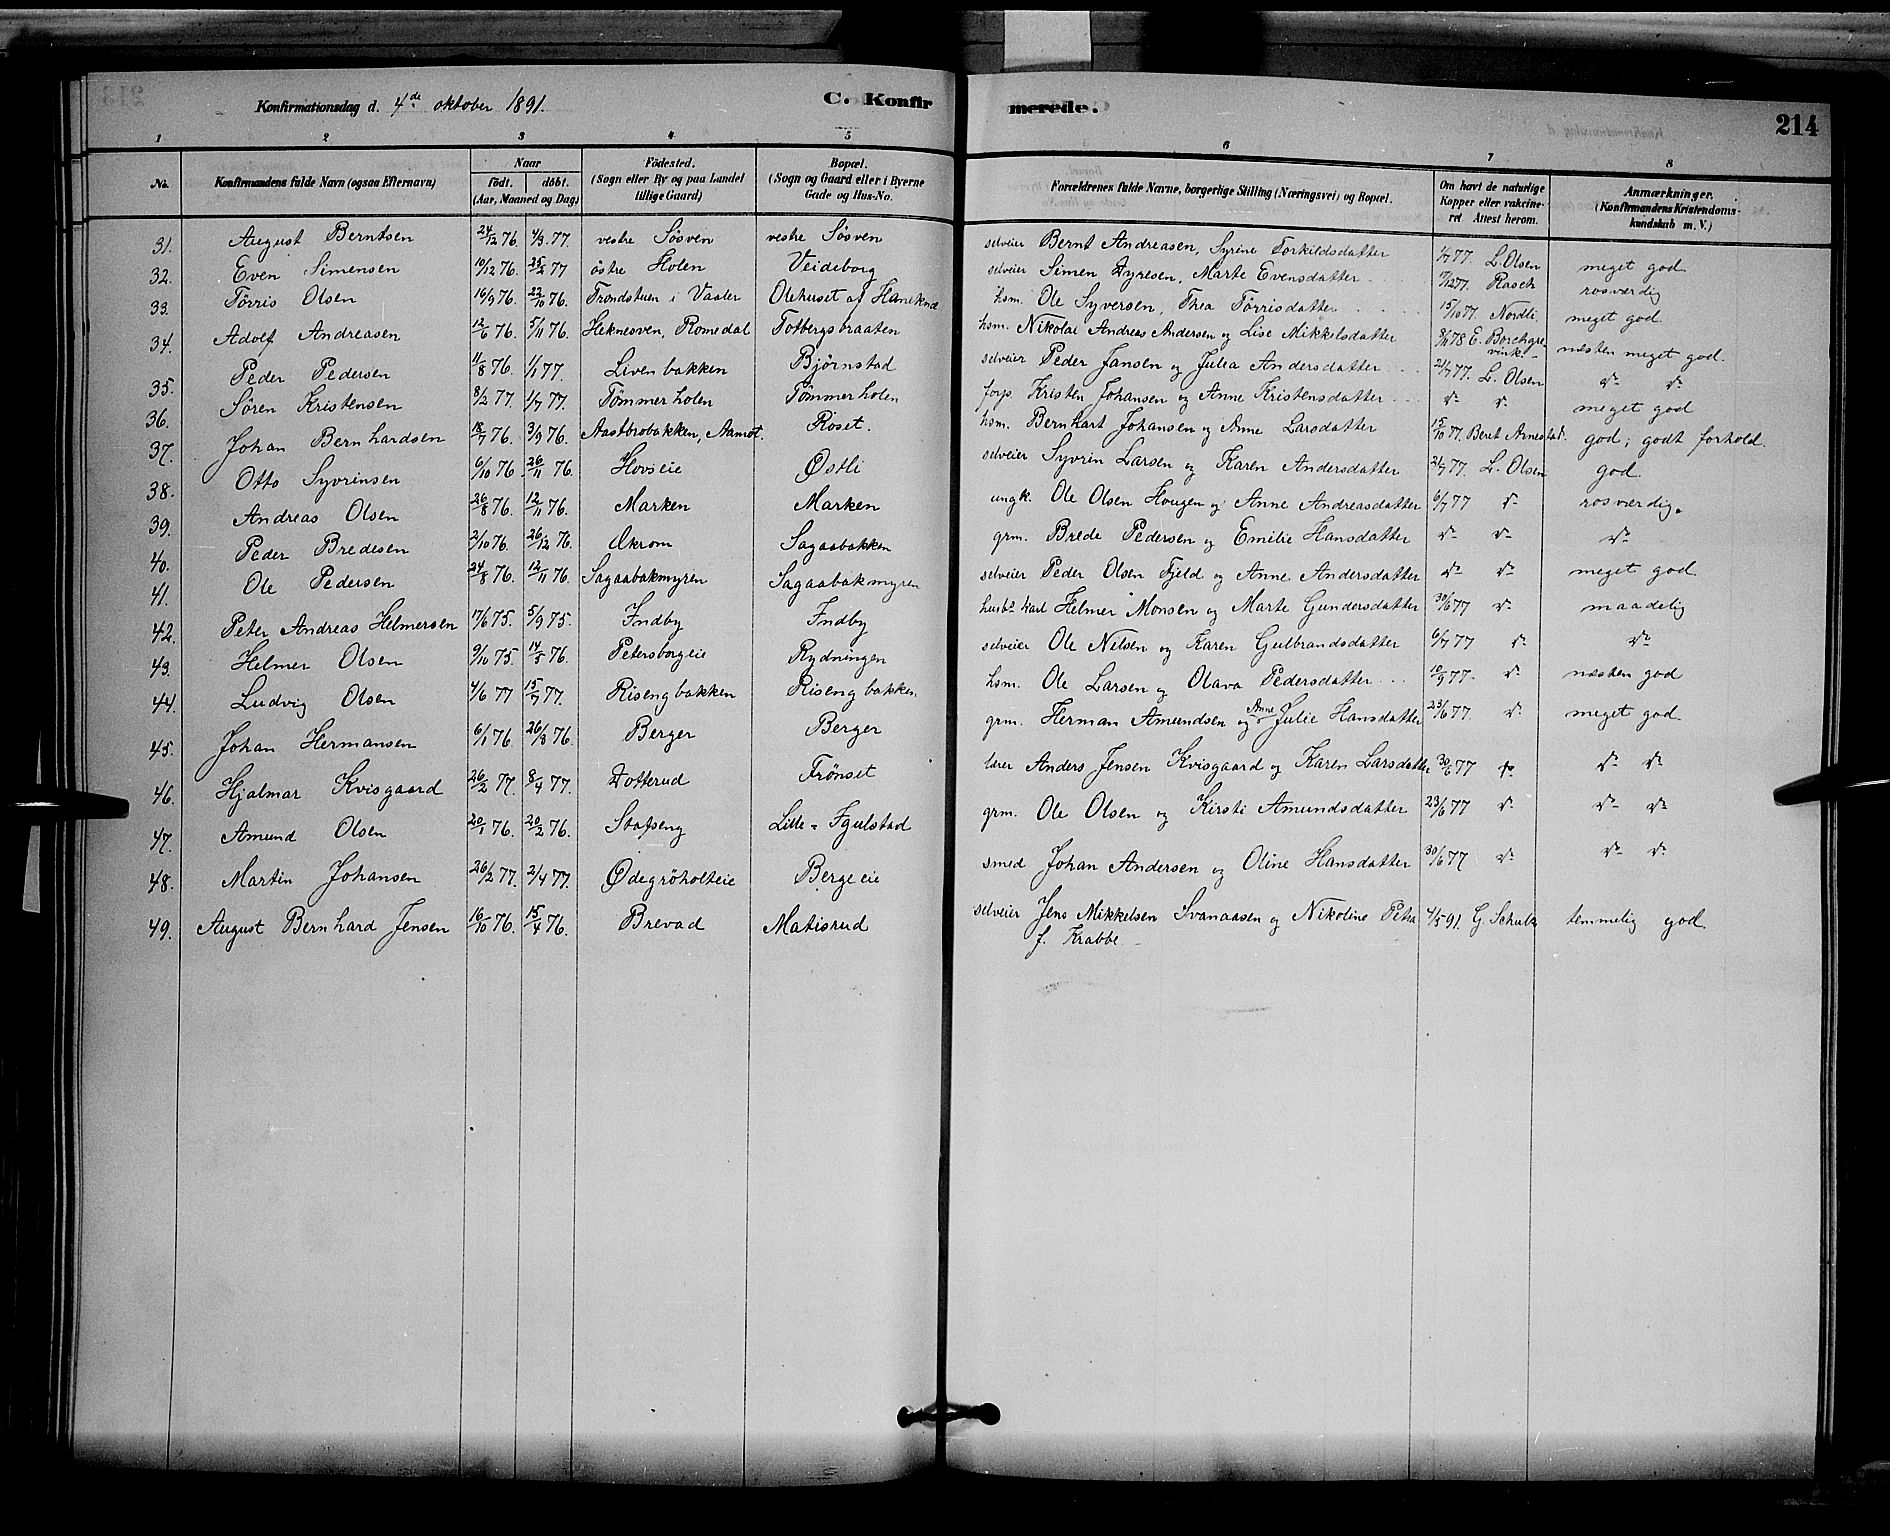 Konfirmationsdag d. 4de oktober 1891. C. Konfirmerede. 214
1 2 3 4 5 6 7 8
No. Konfirmandens fulde Navn (ogsaa Efternavn) Naar födt. döbt. (Aar, Maaned og Dag) Födested. (Sogn eller By og paa Landet tillige Gaard) Bopæl. (Sogn og Gaard eller i Byerne Gade og Hus-No. Forældrenes fulde Navne, borgerlige Stilling (Næringsvei) og Bopæl. Om havt de naturlige Kopper eller vakcineret. Attest herom. Anmærkninger. (Konfirmandens Kristendomskundskab m. V.)
31. August Berntsen 24/12 76. 4/3 77. vestre Søsven vestre Søsven selveier Bernt Andreasen, Syrine Torkildsdatter 77. L. Olsen meget god
32. Even Simensen 10/12 76. 25/2 77 östre Holen Veideborg selveier Simen Dyresen, Marte Evensdatter 17/12 77. Rasch rosværdig
33. Törris Olsen 16/9 76. 22/10 76. Trondstuen i Vaaler Olehuset af hsm. Ole Syversen, Thea Törrisdatter 15/10 77. Nordli meget god
34. Adolf Andreasen 12/6 76. 5/11 76. Heknesven, Romedal Totbergsbraaten hsm. Nikolai Andreas Andersen og Lise Mikkelsdatter 78 E. Borchgrevink næsten meget god.
35. Peder Pedersen 11/8 76. 1/1 77. Livenbakken Bjørnstad selveier Peder Jansen og Julia Andersdatter 24/7 77. L. Olsen do do
36. Sören Kristensen 8/2 77. 1/7 77. Tömmerholen Tömmerholen forp. Kristen Johansen og Anne Kristensdatter do do meget god
37. Johan Bernhardsen 18/7 76. 3/9 76. Aastbrobakken, Aamot. Roset. hsm. Bernhart Johansen og Anne Larsdatter 15/10 77. Beret Arnestad. god; godt forhold.
38. Otto Syvrinsen 6/10 76 26/11 76. Hovseie Østli selveier Syvrin Larsen og Karen Andersdatter 24/7 77. L. Olsen god
39. Andreas Olsen 26/8 76. 12/11 76. Marken Marken ungk. Ole Olsen Hougen og Anne Andreasdatter 6/7 77 do rosværdig.
40. Peder Bredesen 2/10 76. 26/12 76. Økrom Sagaabakken grm. Brede Pedersen og Emilie Hansdatter do do do
41. Ole Pedersen 24/8 76. 12/11 76. Sagaabakmyren Sagaabakmyren selveier Peder Olsen Fjeld og Anne Andersdatter do do meget god
42. Peter Andreas Helmersen 17/6 75. 5/9 75. Indby Indby karl Helmer Monsen og Marte Gundersdatter 30/6 77 do maadelig
43. Helmer Olsen 9/10 75. 14/5 76. Petersborgeie Rydningen selveier Ole Nilsen og Karen Gulbrandsdatter 6/7 77 do do
44. Ludvig Olsen 4/6 77 15/7 77. Risengbakken Risengbakken hsm. Ole Larsen og Olava Pedersdatter 10/9 77. do næsten god
45. Johan Hermansen 6/1 76 26/3 76. Berger Berger grm. Herman Amundsen og Anne Julie Hansdatter 23/6 77. do meget god
46. Hjalmar Kvisgaard 26/2 77. 8/4 77. Dotterud Frönset lærer Anders Jensen Kvisgaard og Karen Larsdatter 30/6 77 do do do
47. Amund Olsen 20/1 76. 20/2 76. Stafseng Lille-Fgulstad grm. Ole Olsen og Kirsti Amundsdatter 23/6 77 do do do
48. Martin Johansen 26/2 77. 2/4 77. Ødegröholteie Bergeeie smed Johan Andersen og Oline Hansdatter 30/6 77 do do do
49. August Bernhard Jensen 16/10 76. 15/4 76. Brevad Matisrud selveier Jens Mikkelsen Svanaasen og Nikoline Petra 4/5 91. G. Schulz temmelig god.
f. Krabbe